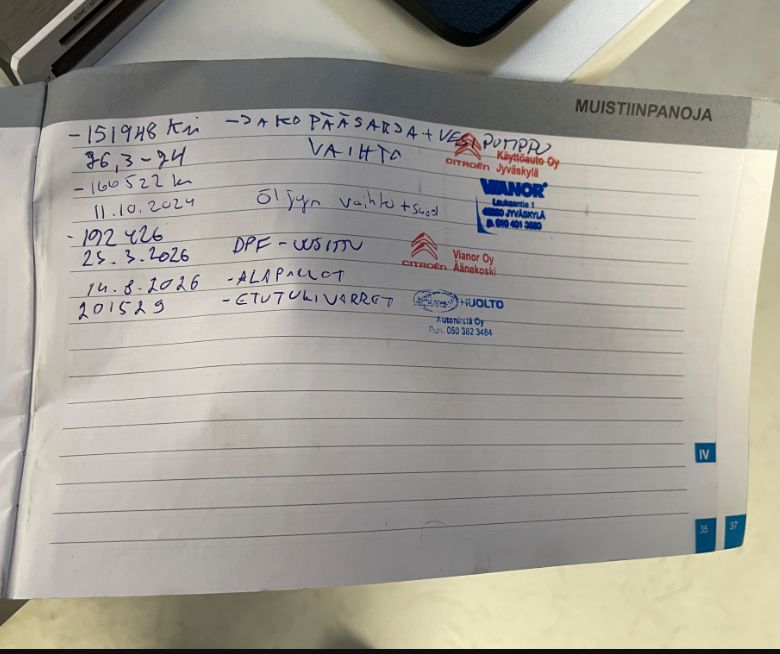 MUISTIINPANOJA
-151948 km -JAKOPÄÄSARJA + VESIPUMPPU
26,3-24 VAIHTO
CITROËN Käyttöauto Oy
Jyväskylä
-160522 km
VIANOR
Laukaantie 1
JYVÄSKYLÄ
p. 010 401 3660
11.10.2024 Öljyn vaihto + suod
-192426
25.3.2026 DPF-UUSITTU
CITROËN Vianor Oy
Äänekoski
14.8.2026 -ALAPALLOT
201529 -ETUTUKIVARRET
HUOLTO
Oy
Puh. 050 382 3484
IV
35
37